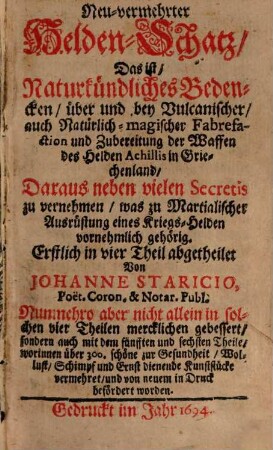 Neu-vermehrter
Helden-Schatz/
Das ist/
Naturkündliches Beden-
cken/ über und bey Vulcanischer/
auch Natürlich-magischer Fabrefa-
ction und Zubereitung der Waffen
des Helden Achillis in Grie-
chenland/
Daraus neben vielen Secretis
zu vernehmen/ was zu Martialischer
Ausrüstung eines Kriegs-Helden
vornehmlich gehörig.
Erstlich in vier Theil abgetheilet
Von
JOHANNE STARICIO,
Poët. Coron. & Notar. Publ.
Nunmehro aber nicht allein in sol-
chen vier Theilen mercklichen gebessert/
sondern auch mit dem fünfften und sechsten Theile/
worinnen über 300. schöne zur Gesundheit/ Wol-
lust/ Schimpf und Ernst dienende Kunststücke
vermehret/ und von neuem in Druck
befördert worden.
Gedruckt im Jahr 1694.